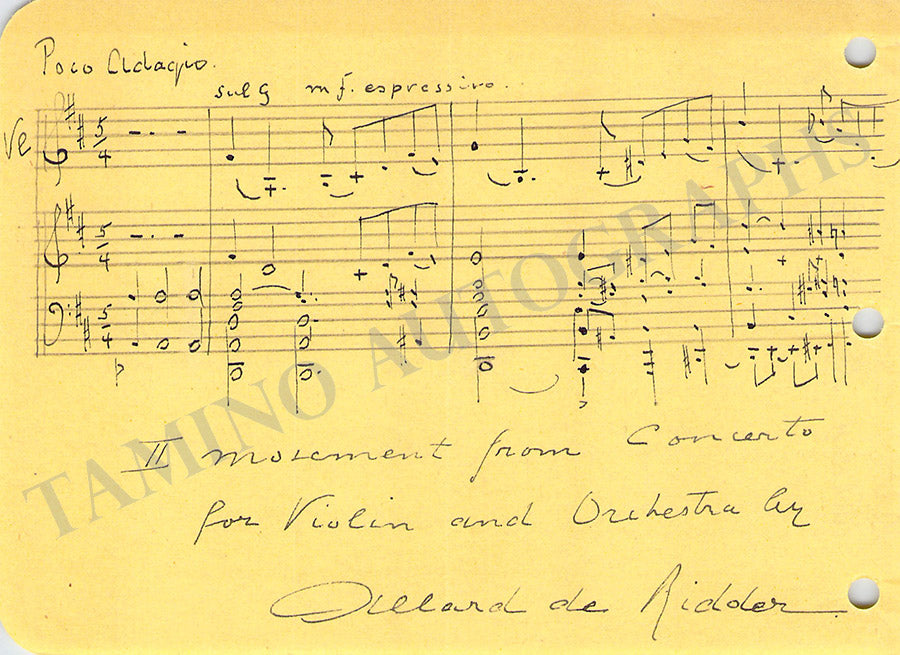 Poco Adagio.
sul G mf. espressivo..
Vl
5/4
5/4
5/4
TAMINO AUTOGRAPHS
II movement from Concerto
for Violin and Orchestra by
Allard de Ridder